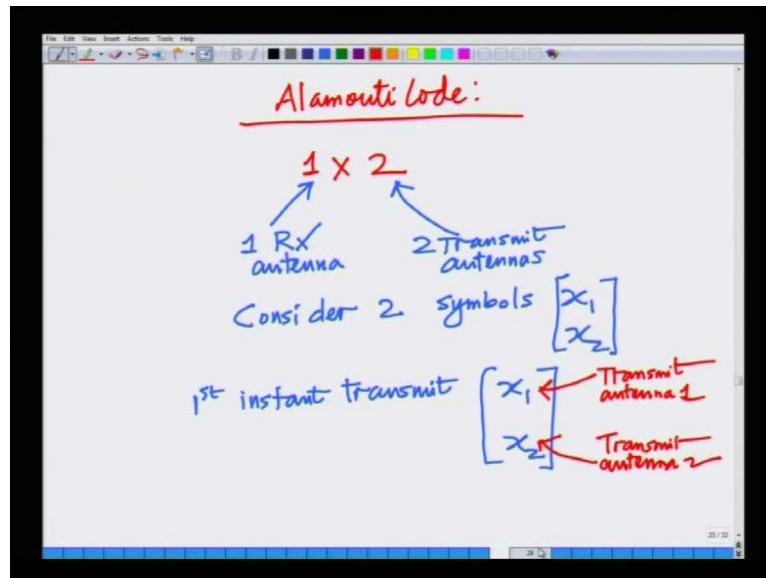 File Edit View Insert Actions Tools Help
B I
Alamouti Code:
1 x 2
1 Rx antenna
2 Transmit antennas
Consider 2 symbols [x₁ x₂]
1st instant transmit [x₁ x₂]
Transmit antenna 1
Transmit antenna 2
23/33
24